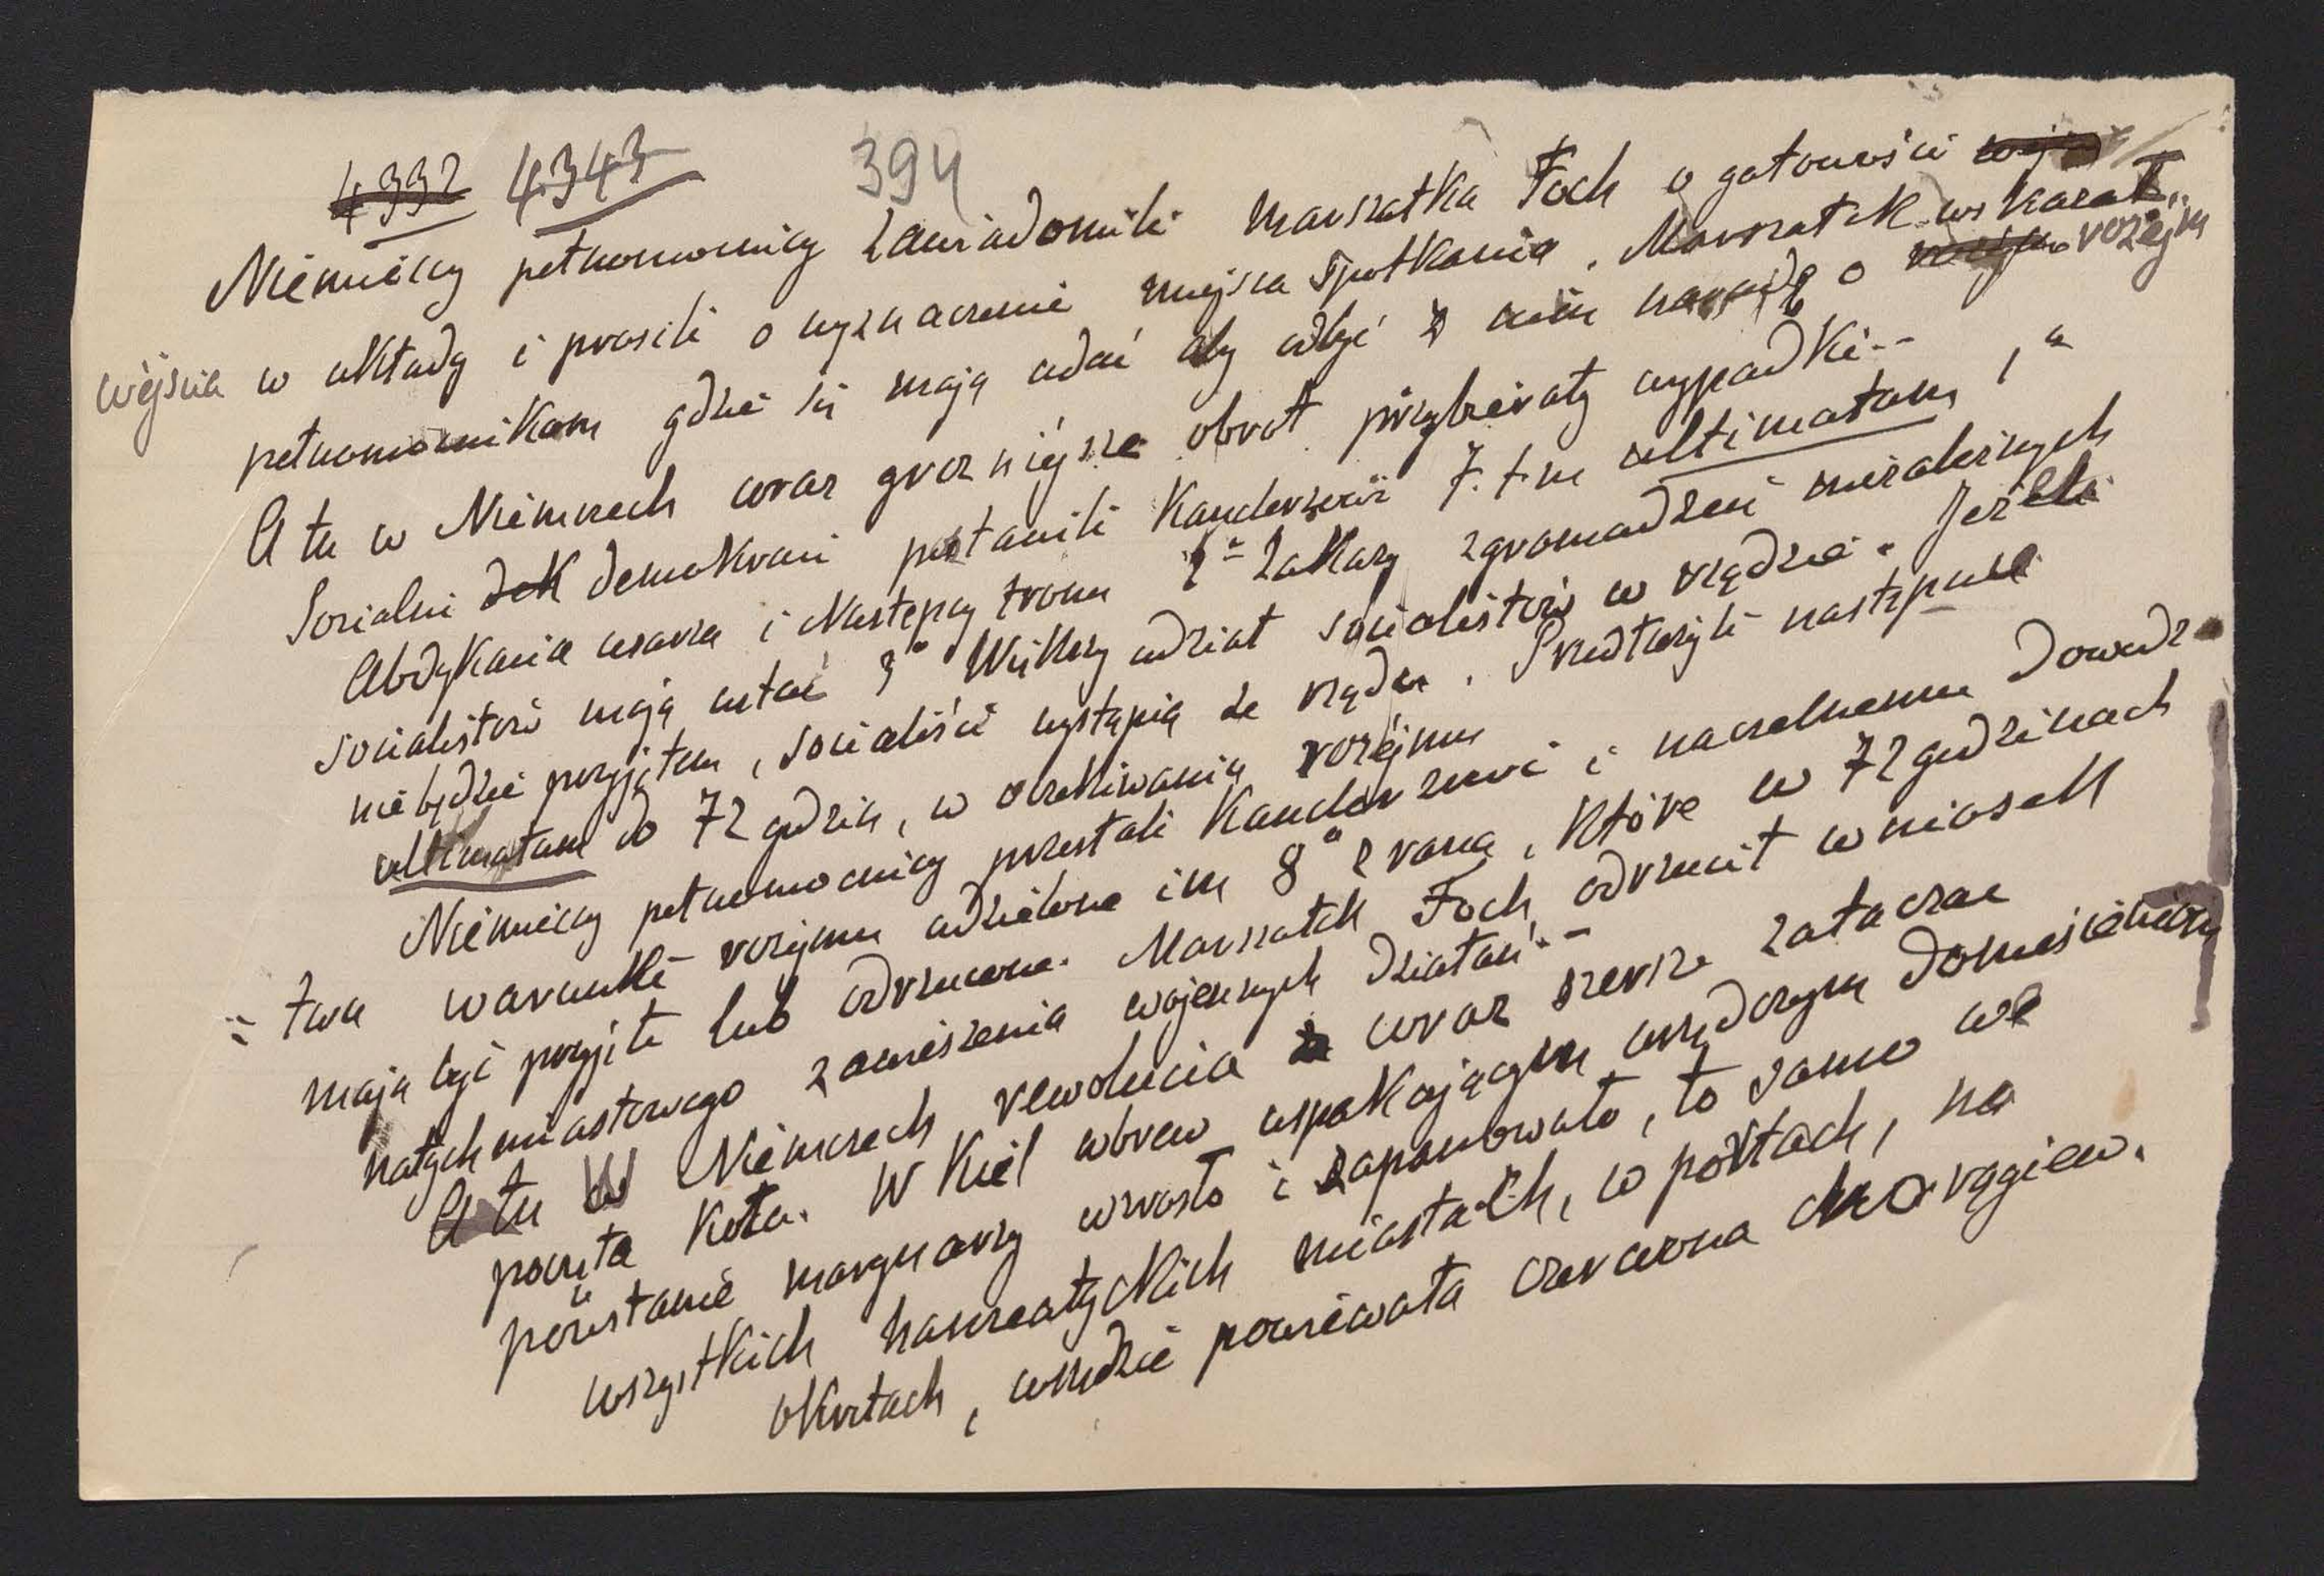 4332 4343 394
Niemieccy pełnomocnicy zawiadomili marszałka Foch o gotowości wejs
wejścia w układy i prosili o wyznaczenie miejsca spotkania. Marszałek wskazał
pełnomocnikom gdzie się mają udać aby odbyć z nim naradę o rozejm
A tu w Niemczech coraz groźniejsze obrót przybierały wypadki --
Socialni dek demokraci postawili Kanclerzowi 7. t. m ultimatum 1°
Abdykacia cesarza i Następcy tronu 2° Zakazy zgromadzeń niezależnych
socialistów mają ustać 3° Większy udział socialistów w rządzie. Jeżeli
nie będzie przyjętem, socialiści wystąpią ze rządu. Przedłużyli następnie
ultimatum do 72 godzin, w oczekiwaniu rozejmu
Niemieccy pełnomocnicy przesłali Kanclerzowi i naczelnemu Dowódz=
=twu warunki rozejmu udzielone im 8° z rana, które w 72 godzinach
mają być przyjęte lub odrzucone. Marszałek Foch odrzucił wniosek
natychmiastowego zawieszenia wojennych działań. -
A tu w Niemczech rewolucia coraz szersze zataczać
poczęła koła. W Kiel wbrew uspakającym urzędowym doniesieniom
powstanie marynarzy wzrosło i zapanowało, to samo we
wszystkich hanzeatyckich miastach, w portach, na
okrętach, wszędzie powiewała czerwona chorągiew.